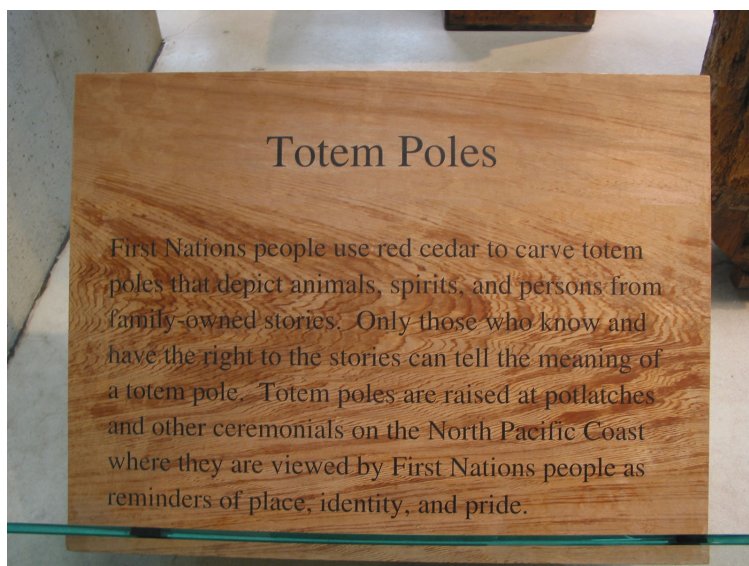 Totem Poles
First Nations people use red cedar to carve totem
poles that depict animals, spirits, and persons from
family-owned stories.  Only those who know and
have the right to the stories can tell the meaning of
a totem pole.  Totem poles are raised at potlatches
and other ceremonials on the North Pacific Coast
where they are viewed by First Nations people as
reminders of place, identity, and pride.